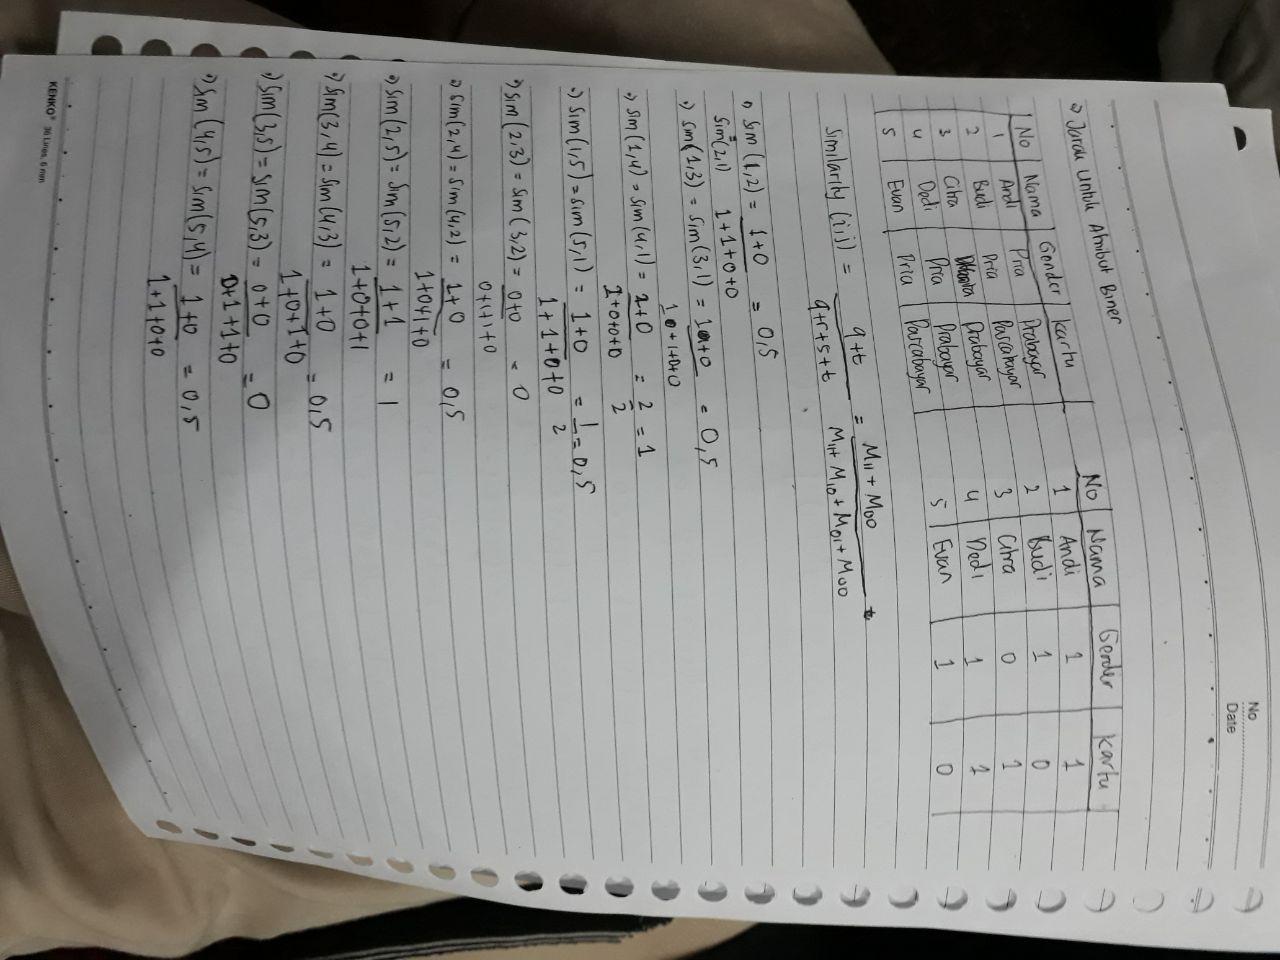 No
Date
=> Jarak Untuk Atribut Biner
No Nama Gender Kartu
1 Andi Pria Prabayar
2 Budi Pria Pascabayar
3 Citra Wanita Prabayar
4 Dedi Pria Prabayar
5 Evan Pria Pascabayar
No Nama Gender Kartu
1 Andi 1 1
2 Budi 1 0
3 Citra 0 1
4 Dedi 1 1
5 Evan 1 0
Similarity (i,j) = q+t / q+r+s+t = M11 + M00 / M11+ M10 + M01 + M00
=> Sim (1,2) = Sim(2,1) = 1+0 / 1+1+0+0 = 0,5
=> Sim(1,3) = Sim(3,1) = 1+0 / 1+0+1+0 = 0,5
=> Sim(1,4) = Sim(4,1) = 2+0 / 2+0+0+0 = 2/2 = 1
=> Sim(1,5) = Sim(5,1) = 1+0 / 1+1+0+0 = 1/2 = 0,5
=> Sim(2,3) = Sim(3,2) = 0+0 / 0+1+1+0 = 0
=> Sim(2,4) = Sim(4,2) = 1+0 / 1+0+1+0 = 0,5
=> Sim(2,5) = Sim(5,2) = 1+1 / 1+0+0+1 = 1
=> Sim(3,4) = Sim(4,3) = 1+0 / 1+0+1+0 = 0,5
=> Sim(3,5) = Sim(5,3) = 0+0 / 0+1+1+0 = 0
=> Sim(4,5) = Sim(5,4) = 1+0 / 1+1+0+0 = 0,5
KENKO® 36 Lines, 6 mm